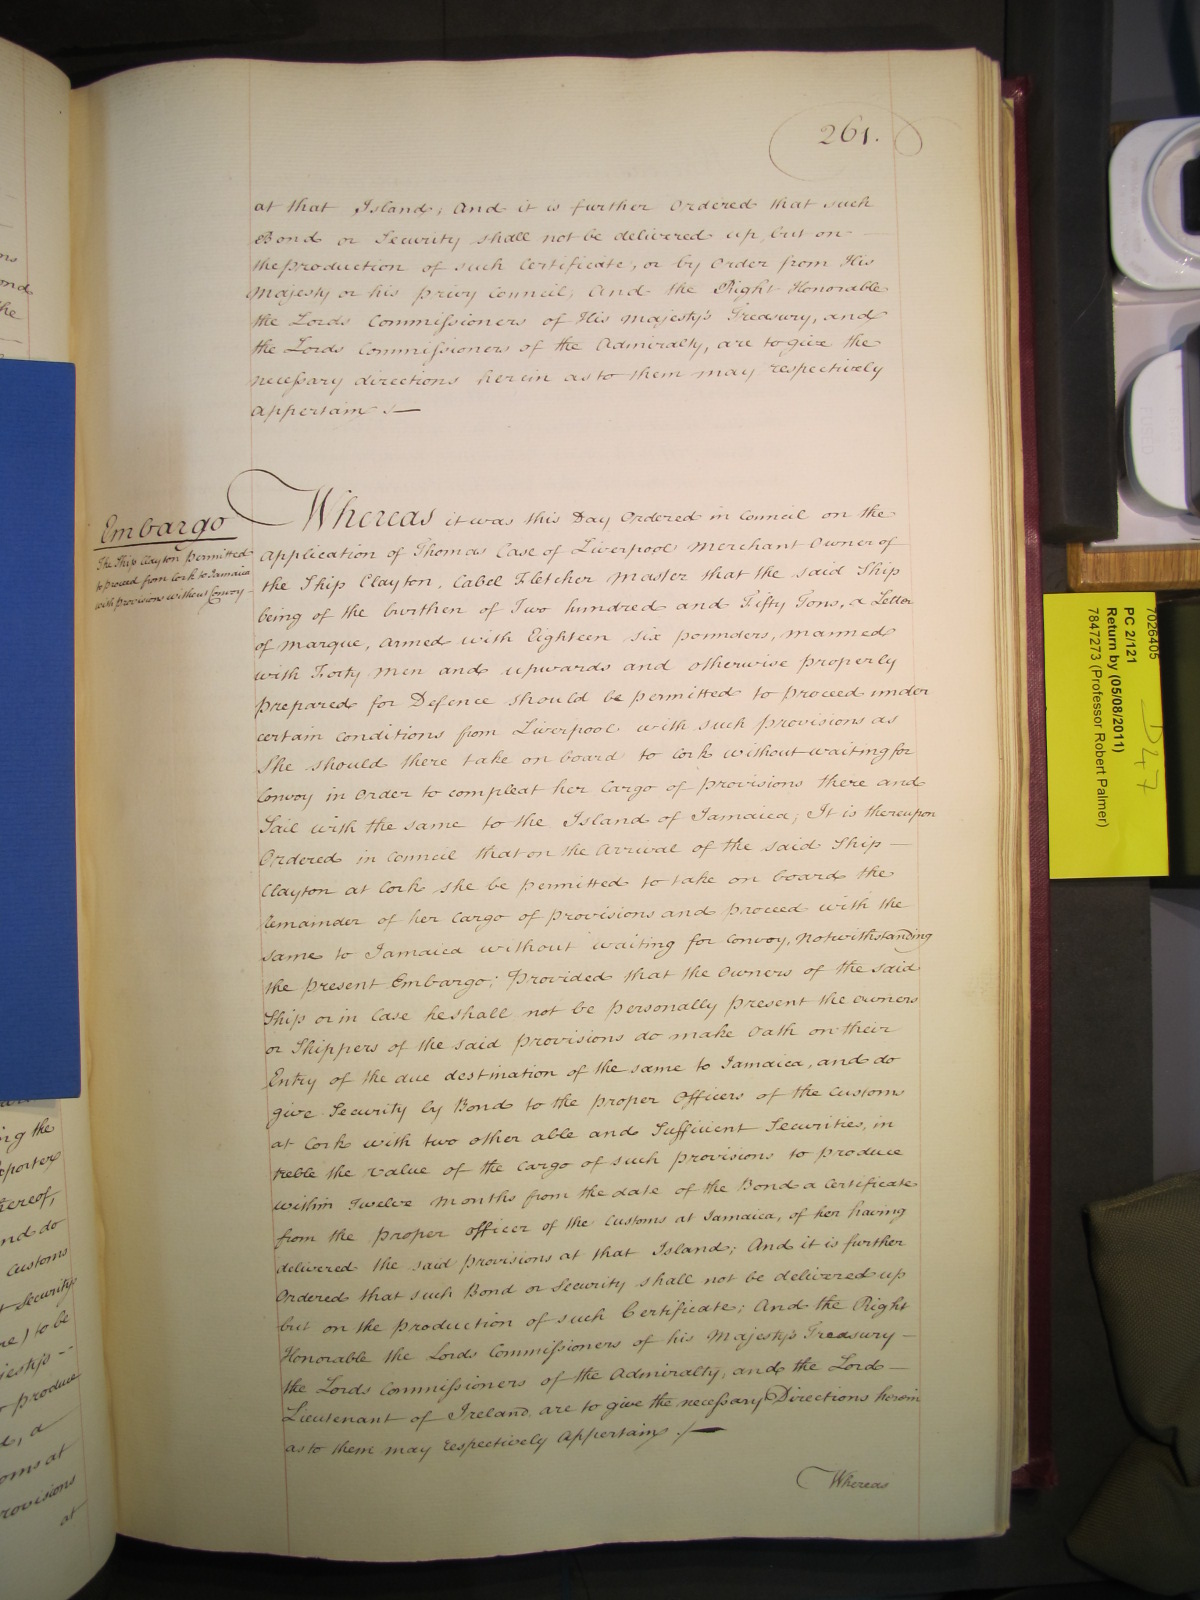 261.
at that Island; And it is further Ordered that such
Bond or Security shall not be delivered up, but on
the production of such Certificate, or by Order from His
Majesty or his Privy Council; And the Right Honorable
the Lords Commissioners of His Majesty's Treasury, and
the Lords Commissioners of the Admiralty, are to give the
necessary directions herein as to them may respectively
appertain ;—
Embargo
The Ship Clayton Permitted
to proceed from Cork to Jamaica
with provisions without Convoy
Whereas it was this Day Ordered in Council on the
application of Thomas Case of Liverpool Merchant Owner of
the Ship Clayton, Cabel Fletcher Master that the said Ship
being of the burthen of Two hundred and Fifty Tons, a Letter
of Marque, armed with Eighteen six pounders, manned
with Forty Men and upwards and otherwise properly
prepared for Defence should be permitted to proceed under
certain conditions from Liverpool with such provisions as
She should there take on board to Cork without waiting for
Convoy in Order to compleat her Cargo of provisions there and
Sail with the same to the Island of Jamaica; It is thereupon
Ordered in Council that on the arrival of the said Ship —
Clayton at Cork she be permitted to take on board the
Remainder of her Cargo of provisions and proceed with the
same to Jamaica without waiting for Convoy, Notwithstanding
the present Embargo; Provided that the Owners of the said
Ship or in Case he shall not be personally present the owners
or Shippers of the said provisions do make Oath on their
Entry of the due destination of the same to Jamaica, and do
give Security by Bond to the proper Officers of the Customs
at Cork with two other able and Sufficient Securities, in
treble the value of the Cargo of such provisions to produce
within Twelve Months from the date of the Bond a Certificate
from the proper officer of the Customs at Jamaica, of her having
delivered the said provisions at that Island; And it is further
Ordered that such Bond or Security shall not be delivered up
but on the production of such Certificate; And the Right
Honorable the Lords Commissioners of his Majesty's Treasury —
the Lords Commissioners of the Admiralty, and the Lord —
Lieutenant of Ireland are to give the necessary Directions herein
as to them may respectively Appertain ./—
Whereas
7026405
PC 2/121
Return by (05/08/2011)
7847273 (Professor Robert Palmer)
D47
ond
he
ng the
xporter
hereof,
nd do
Customs
Security
e) to be
jesty's
produce
d, a
oms at
rovisions
at